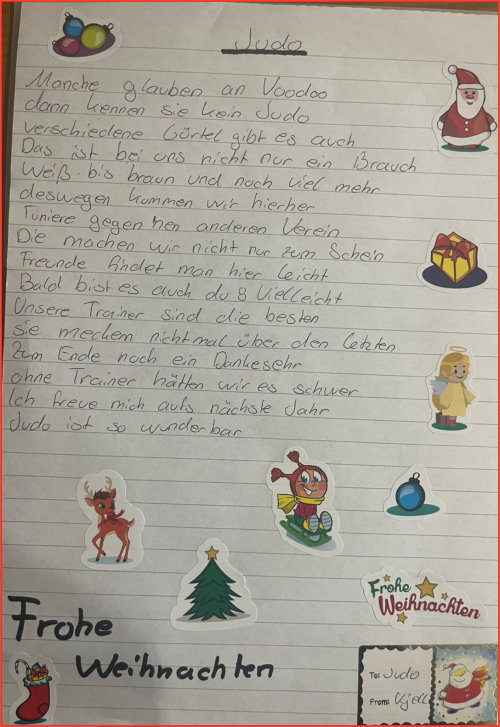 Judo
Manche glauben an Voodoo
dann kennen sie kein Judo
verschiedene Gürtel gibt es auch
Das ist bei uns nicht nur ein Brauch
Weiß bis braun und noch viel mehr
deswegen kommen wir hierher
Tuniere gegen den anderen Verein
Die machen wir nicht nur zum Schein
Freunde findet man hier leicht
Bald bist es auch du 8 Vielleicht
Unsere Trainer sind die besten
sie meckern nichtmal über den letzten
Zum Ende noch ein Dankesehr
ohne Trainer hätten wir es schwer
Ich freue mich aufs nächste Jahr
Judo ist so wunderbar
Frohe
Weihnachten
Frohe
Weihnachten
To: Judo
From: